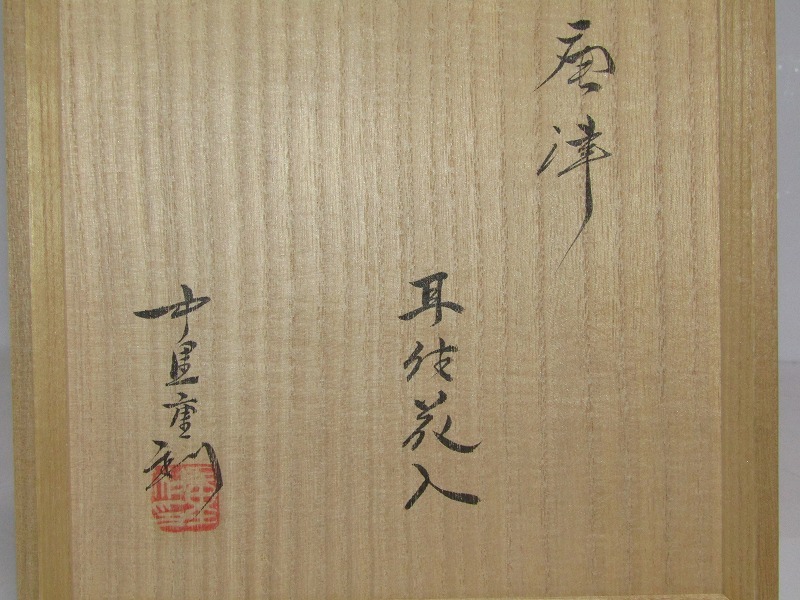 唐津
耳付花入
中里重利